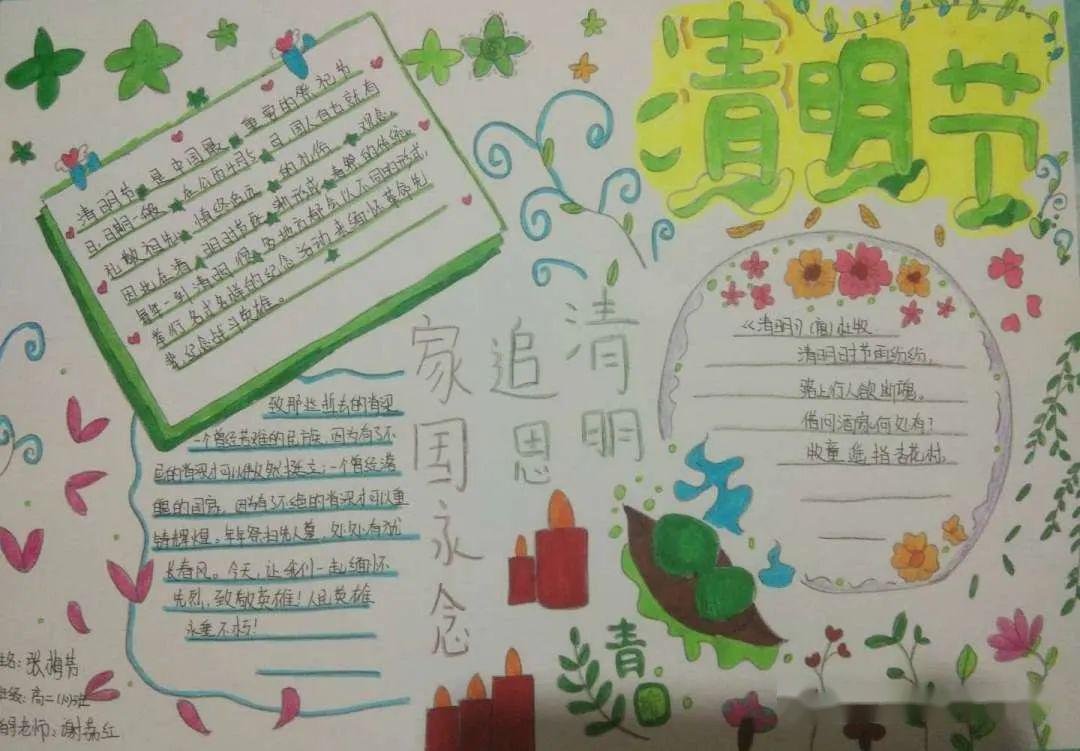 清明节
清明节 是中国最 重要的祭祀节
日,日期一般 在公历4月5 日 国人自古就有
礼敬祖先 慎终追远 的礼俗 观念,
因此在清 明时节 新形成 的传统,
每年一到清明 各地 都会以不同的形式,
举行各式各样的纪念活动来缅怀革命先
纪念战斗英雄。
致那些逝去的脊梁
一个曾经苦难的民族,因为有了不
巳的脊梁才可以傲然挺立;一个曾经满
的国家,因为有了不绝的脊梁才可以重
铸辉煌。年年祭扫先人墓,处处有犹
长春风。今天,让我们一起缅怀
先烈,致敬英雄!人民英雄
永垂不朽!
清明
追思
家国永念
《清明》(唐)杜牧
清明时节雨纷纷,
路上行人欲断魂。
借问酒家何处有?
牧童遥指杏花村。
青团
姓名:张梅芳
班级:高二(10)班
老师:谢荔红